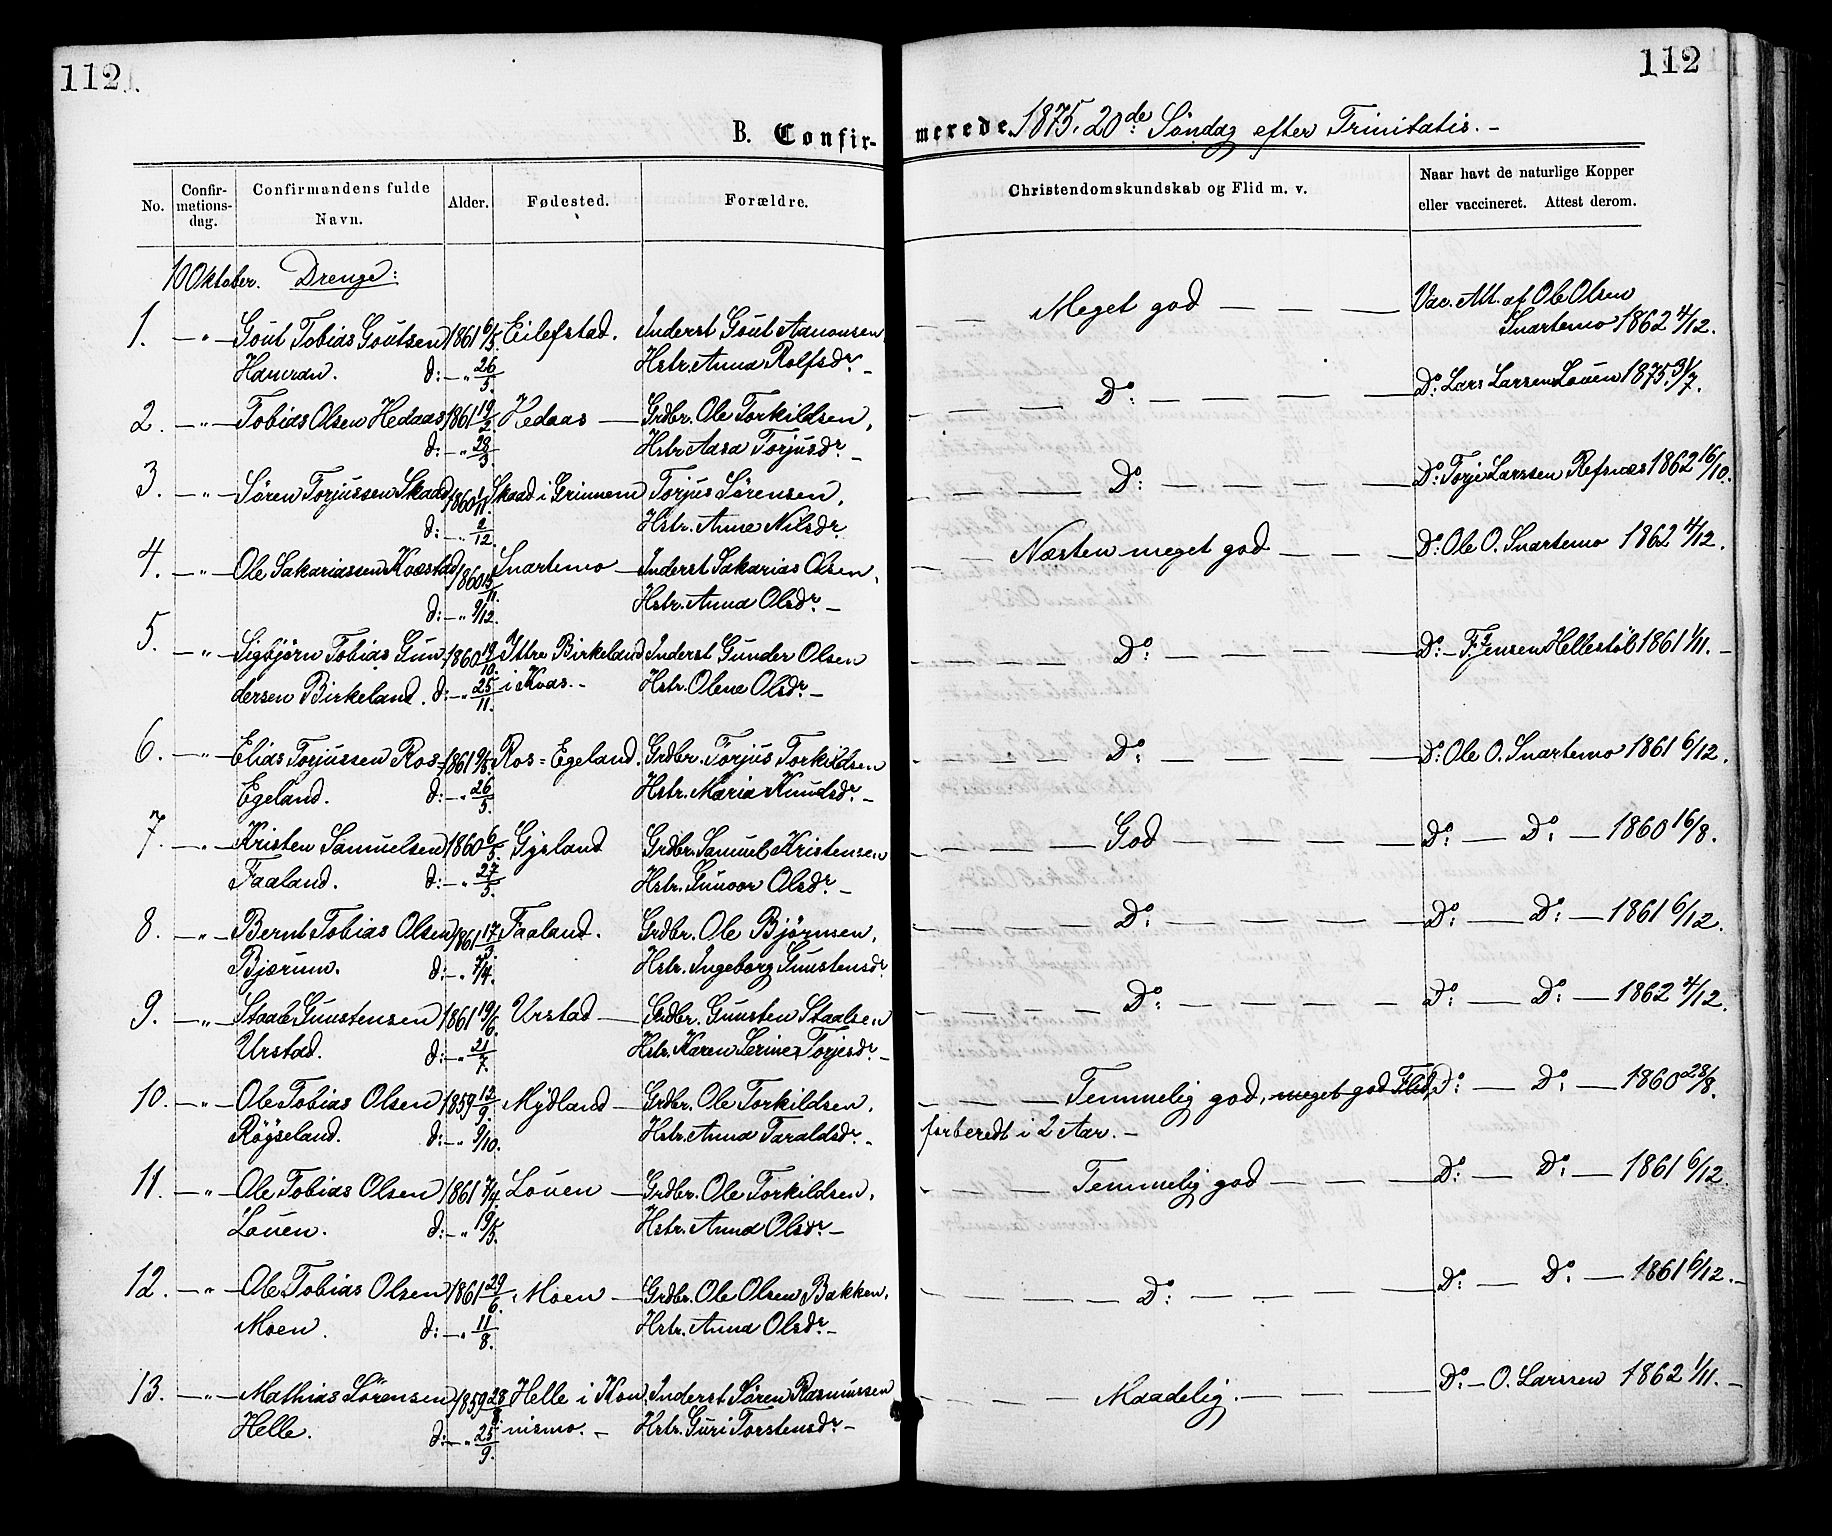 112.
112
B. Confir-
merede 1875. 20de Søndag efter Trinitatis. –
No.
Confir-
mations-
dag.
Confirmandens fulde
Navn.
Alder.
Fødested.
Forældre.
Christendomskundskab og Flid m. v.
Naar havt de naturlige Kopper
eller vaccineret. Attest derom.
10 Oktober. Drenge:
1. — „ — Gout Tobias Goutsen 1861 6/5. Eilefstad. Inderst Gout Aanonsen, — — — Meget god — — — Vac. Att. af Ole Olsen
Haaeraa. d: — „ 26/5. Hstr. Anna Rolfsdr. – Snartemo 1862 4/12.
2. — „ — Tobias Olsen Hedaas 1861 19/2. Hedaas — Grdbr. Ole Torkildsen, — — — Do: — — — — Do: Lars Larsen Louen 1875 31/7.
d: — „ 28/3. Hstr Aasa Torjusdr. –
3. — „ — Søren Torjussen Skaad 1860 1/11. Skaad i Grinnem Torjus Sørensen, — — — Do: — — — — Do: Torje Larssen Refsnæs 1862 16/10.
d: — „ 2/12. Hstr. Anne Nilsdr.
4. — „ — Ole Sakariassen Kvæstad 1860 15/11. Snartemo — Inderst Sakarias Olsen, — — Næsten meget god — — — Do: Ole O. Snartemo 1862 4/12.
d: — „ 9/12. Hstr. Anna Olsdr. –
5. — „ — Sigbjørn Tobias Gun- 1860 19/10. Ittre Birkeland Inderst Gunder Olsen — — — Do: — — — — Do: – F. Jensen Hellestøl 1861 1/11. –
dersen Birkeland. d: — „ 25/11. i Kvas. – Hstr. Olene Olsdr. –
6. — „ — Elias Torjussen Ros= 1861 9/5. Ros=Egeland. Grdbr. Torjus Torkildsen — — — Do: — — — — Do: Ole O. Snartemo 1861 6/12.
Egeland. d: — „ 26/5. Hstr. Maria Knudsdr. –
7. — „ — Kristen Samuelsen 1860 6/5. Gysland Grdbr. Samuel Kristensen — — — God — — — — Do: — Do: — 1860 16/8.
Faaland. d: — „ 27/5. Hstr. Gunvor Olsdr. –
8. — „ — Bernt Tobias Olsen 1861 17/3. Faaland. Grdbr. Ole Bjørnsen, — — — Do: — — — — Do: — Do: — 1861 6/12.
Bjærum. d: — „ 7/4. Hstr. Ingeborg Gunstensdr.
9. — „ — Staale Gunstensen 1861 19/6. Urstad — Grdbr. Gunsten Staalsen — — — Do: — — — — Do: — Do: — 1862 4/12.
Urstad. d: — „ 21/7. Hstr. Karen Serine Torjesdr. –
10. — „ — Ole Tobias Olsen 1859 12/9. Mydland — Grdbr. Ole Torkildsen, — — — Temmelig god, meget god Flid, Do: — Do: — 1860 28/8.
Røyseland. d: — „ 9/10. Hstr. Anna Taraldsdr. – forberedt i 2 Aar. –
11. — „ — Ole Tobias Olsen 1861 7/4. Louen — Grdbr. Ole Torkildsen, — — — Temmelig god — — — Do: — Do: — 1861 6/12.
Louen. d: — „ 19/5. Hstr. Anna Olsdr. –
12. — „ — Ole Tobias Olsen 1861 29/6. Moen — Grdbr. Ole Olsen Bakken, — — — Do: — — — — Do: — Do: — 1861 6/12. –
Moen. d: — „ 11/8. Hstr. Anna Olsdr. –
13. — „ — Mathias Sørensen 1859 28/8. Helle i Kon- Inderst Søren Rasmussen — — — Maadelig. — — — Do: – O. Larssen 1862 1/11. –
Helle. d: — „ 25/9. nismo. – Hstr. Guri Torstensdr. –